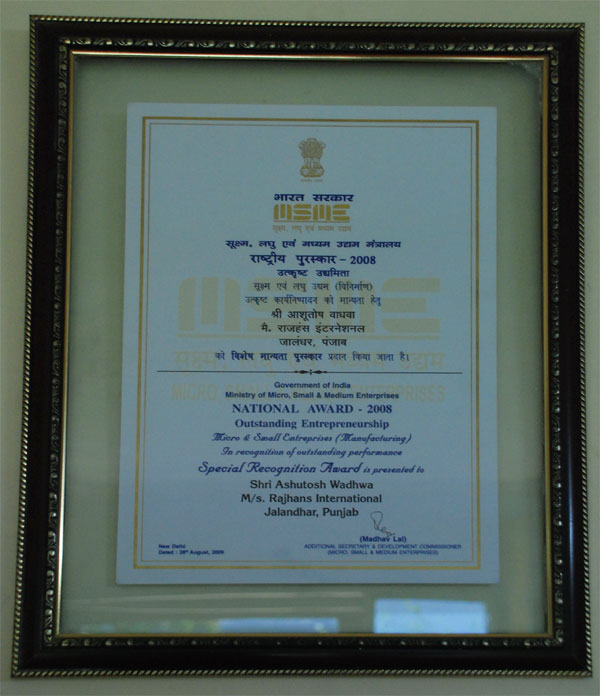 भारत सरकार
MSME
सूक्ष्म, लघु एवं मध्यम उद्यम
सूक्ष्म, लघु एवं मध्यम उद्यम मंत्रालय
राष्ट्रीय पुरस्कार - 2008
उत्कृष्ट उद्यमिता
सूक्ष्म एवं लघु उद्यम (विनिर्माण)
उत्कृष्ट कार्यनिष्पादन को मान्यता हेतु
श्री आशुतोष वाधवा
मै. राजहंस इंटरनेशनल
जालंधर, पंजाब
को विशेष मान्यता पुरस्कार प्रदान किया जाता है।
Government of India
Ministry of Micro, Small & Medium Enterprises
NATIONAL AWARD - 2008
Outstanding Entrepreneurship
Micro & Small Entreprises (Manufacturing)
In recognition of outstanding performance
Special Recognition Award is presented to
Shri Ashutosh Wadhwa
M/s. Rajhans International
Jalandhar, Punjab
(Madhav Lal)
New Delhi
ADDITIONAL SECRETARY & DEVELOPMENT COMMISSIONER
Dated : 28th August, 2009
(MICRO, SMALL & MEDIUM ENTERPRISES)